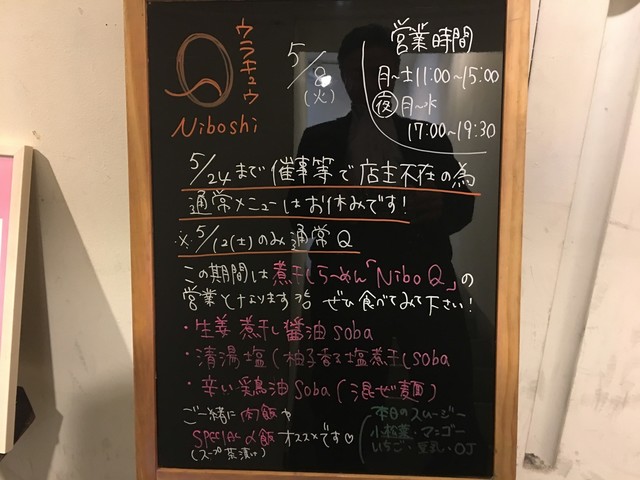 ウラキュウ
Q
Niboshi
5/8
(火)
営業時間
月〜土 11:00〜15:00
夜 月〜水
17:00〜19:30
5/24まで催事等で店主不在の為
通常メニューはお休みです!
※5/12(土)のみ通常Q
この期間は煮干しらーめん「Nibo Q」の
営業となります ぜひ食べてみて下さい!
・生姜煮干し醤油soba
・清湯塩(柚子香る塩煮干しsoba
・辛い鶏油soba(混ぜ麺)
ご一緒に肉飯や
SPECIAL α飯 オススメです♡
(スープ茶漬け)
本日のスムージー
小松菜・マンゴー
いちご・豆乳・OJ